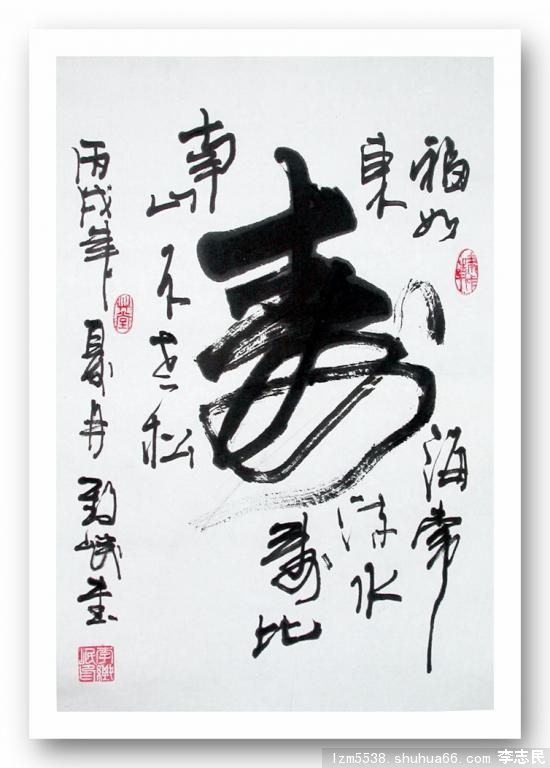 福如
東
海常
流水
寿
寿比
南山不老松
丙戌年夏月
lzm5538.shuhua66.com 李志民